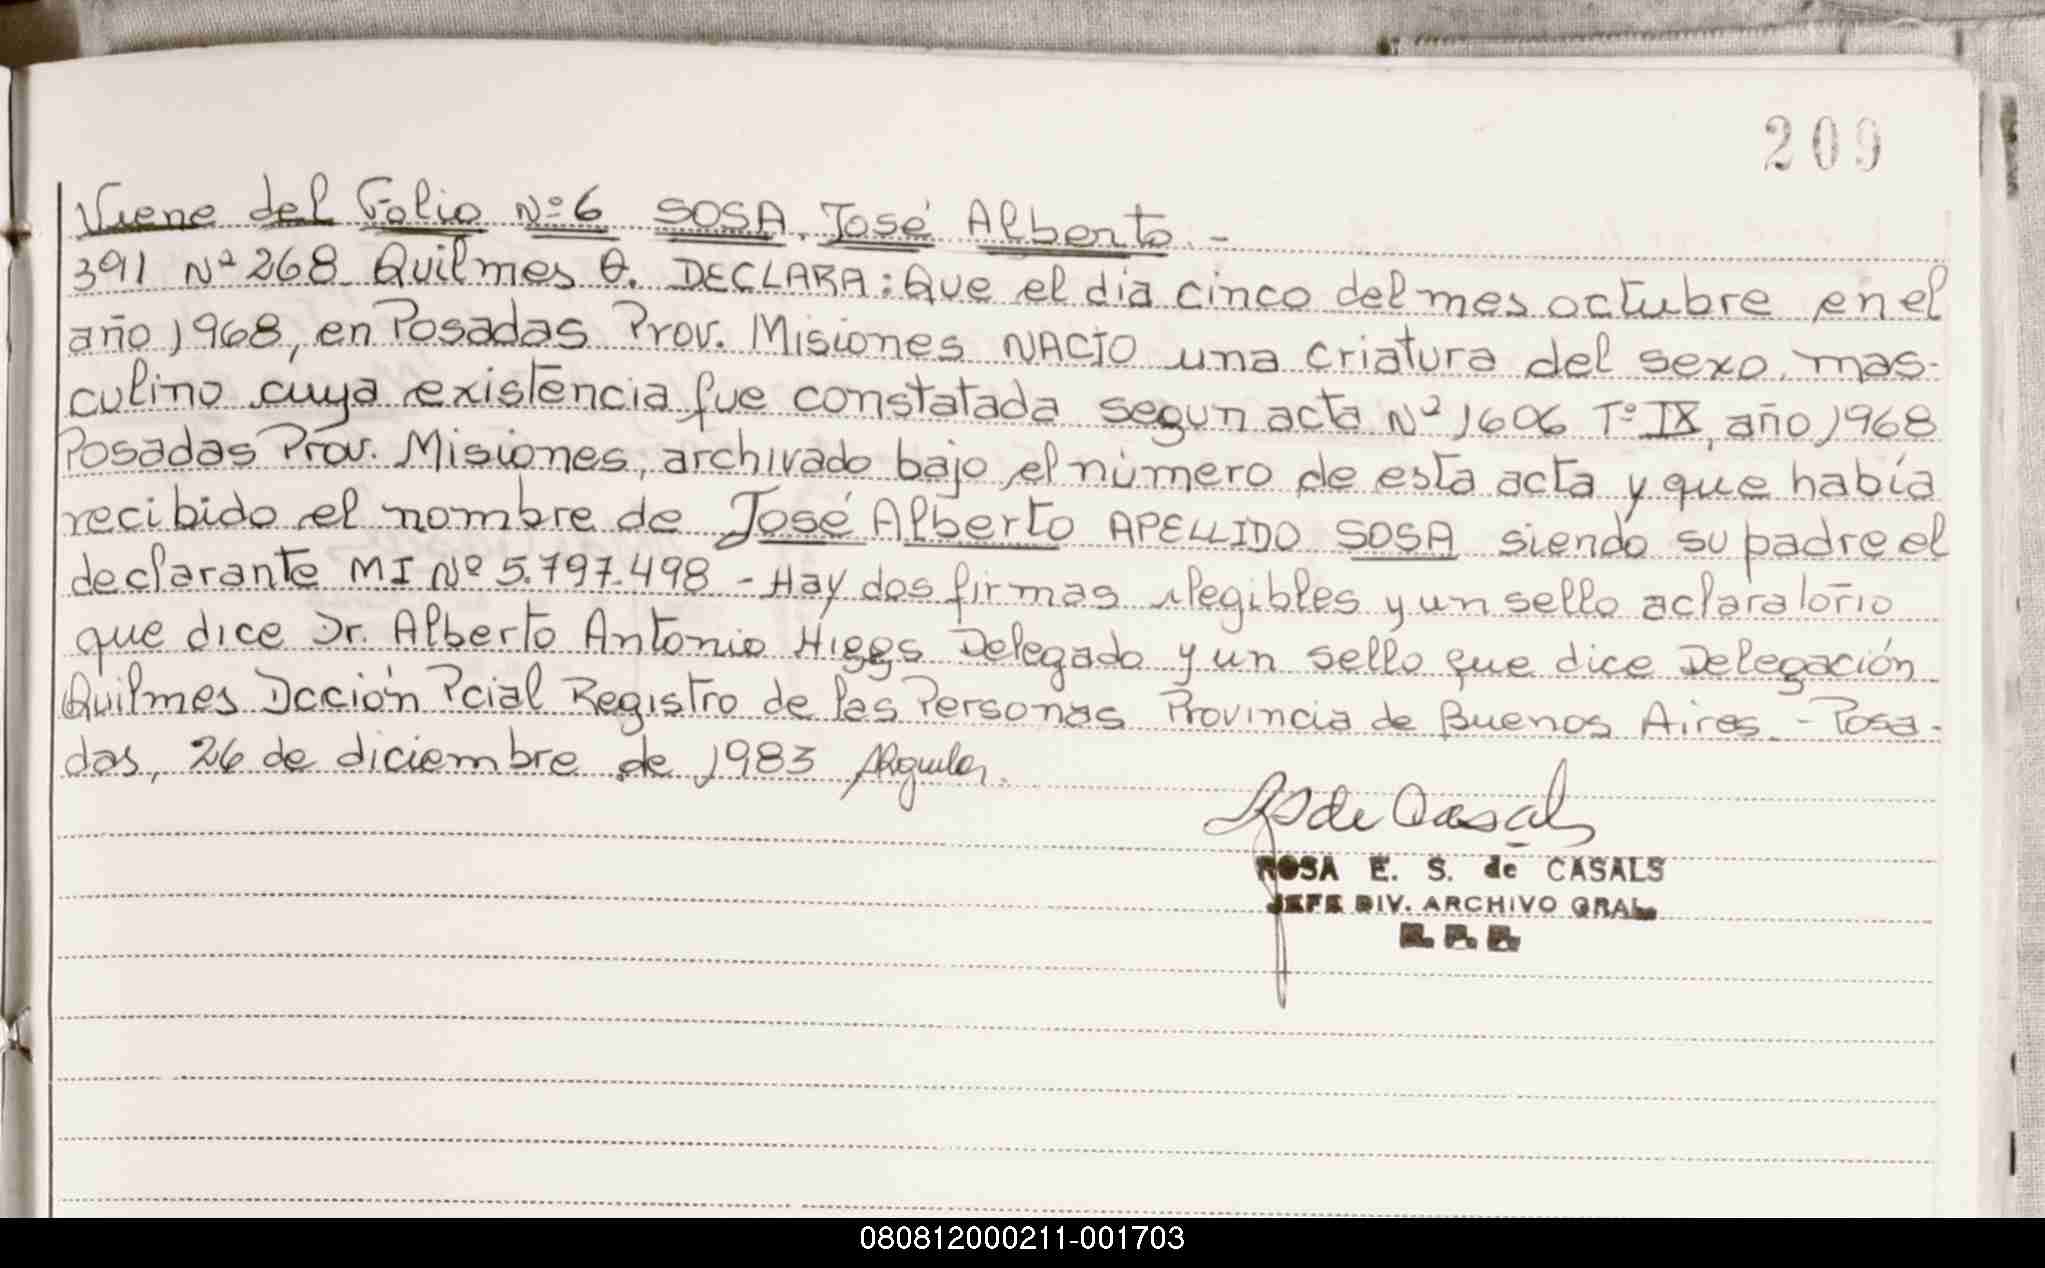 209
Viene del Folio Nº 6 SOSA, José Alberto.-
391 Nº 268 Quilmes O. DECLARA: Que el día cinco del mes octubre en el
año 1968, en Posadas Prov. Misiones NACIO una criatura del sexo mas-
culino cuya existencia fue constatada segun acta Nº 1606 Tº IX, año 1968
Posadas Prov. Misiones, archivado bajo el número de esta acta y que había
recibido el nombre de José Alberto APELLIDO SOSA siendo su padre el
declarante MI Nº 5.797.498 - Hay dos firmas ilegibles y un sello aclaratorio
que dice Dr. Alberto Antonio Higgs Delegado y un sello que dice Delegación
Quilmes Dcción Pcial Registro de las Personas Provincia de Buenos Aires - Posa-
das, 26 de diciembre de 1983
RS de Casals
ROSA E. S. de CASALS
JEFE DIV. ARCHIVO GRAL.
R. P. P.
080812000211-001703